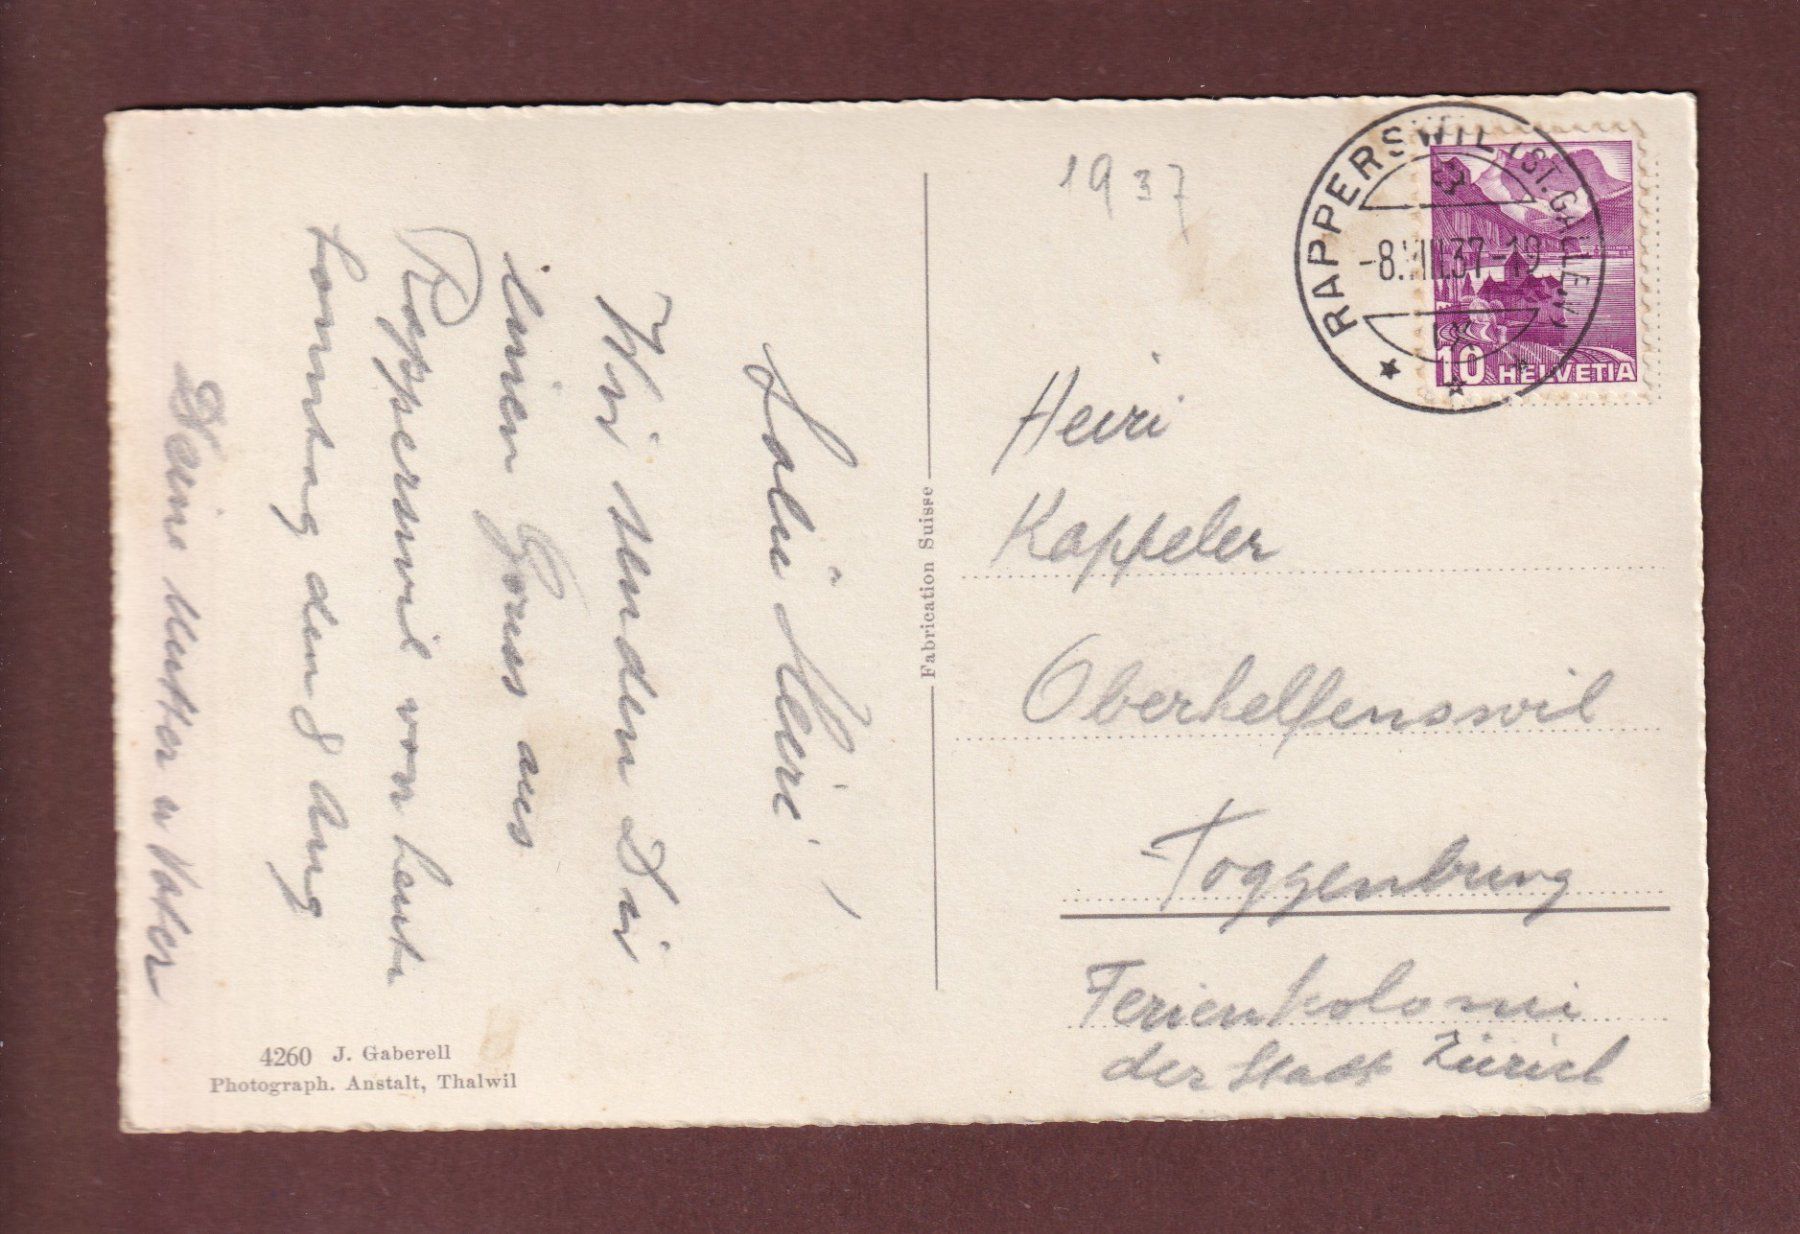 Liebe Heiri!
Wir senden Dir
einen Gruss aus
Rapperswil von heute
Sonntag den 8 Aug
Deine Mutter u Vater
4260 J. Gaberell
Photograph. Anstalt, Thalwil
Fabrication Suisse
1937
RAPPERSWIL (ST. GALLEN)
-8.VIII.37-19
10 HELVETIA
Heiri
Kappeler
Oberhelfenswil
Toggenburg
Ferienkoloni
der Stadt Zürich